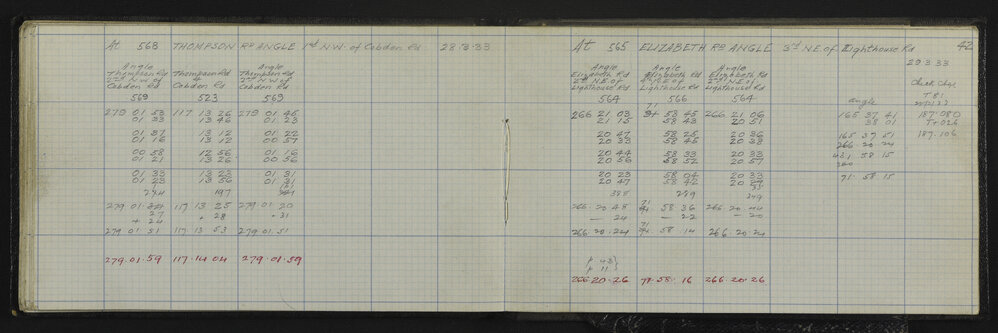 At 568 THOMPSON RD ANGLE 1st N.W. of Cobden Rd 28.3.33
Angle Thompson Rd Angle
Thompson Rd & Thompson Rd
2nd N.W of Cobden Rd 2nd N.W of
Cobden Rd Cobden Rd
569 523 569
279 01 53 117 13 26 279 01 45
01 33 13 46 01 23
01 37 13 12 01 22
01 16 13 12 00 57
00 58 12 56 01 16
01 21 13 26 00 56
01 33 13 23 01 31
01 23 13 56 01 31
197
117 13 25 279.01.20
27 + 28 + 31
+ 24
279.01.51 117 13 53 279.01.51
279.01.59 117.14.04 279.01.59
At 565 ELIZABETH RD ANGLE 3rd N.E. of Lighthouse Rd 42
29.3.33
Angle Angle Angle
Elizabeth Rd Elizabeth Rd Elizabeth Rd
2nd N.E. of N.E of 2nd N.E of
Lighthouse Rd Lighthouse Rd Lighthouse Rd
564 566 564
Angle
71
266 21 03 58 45 266 21 06 165 37 41 187.080
21 15 58 43 20 51 38 01
20 47 58 25 20 36 165 37 51 187.106
20 33 58 45 20 38 266 20 24
20 44 58 33 20 33 58 15
20 56 58 52 20 57
20 23 58 04 20 33 71 58 15
20 47 58 42 20 24
71
266.20.48 58 36 266.20.44
— 24 — 22 — 20
71
266.20.24 58.14 266.20.24
266.20.26 58.16 266.20.26